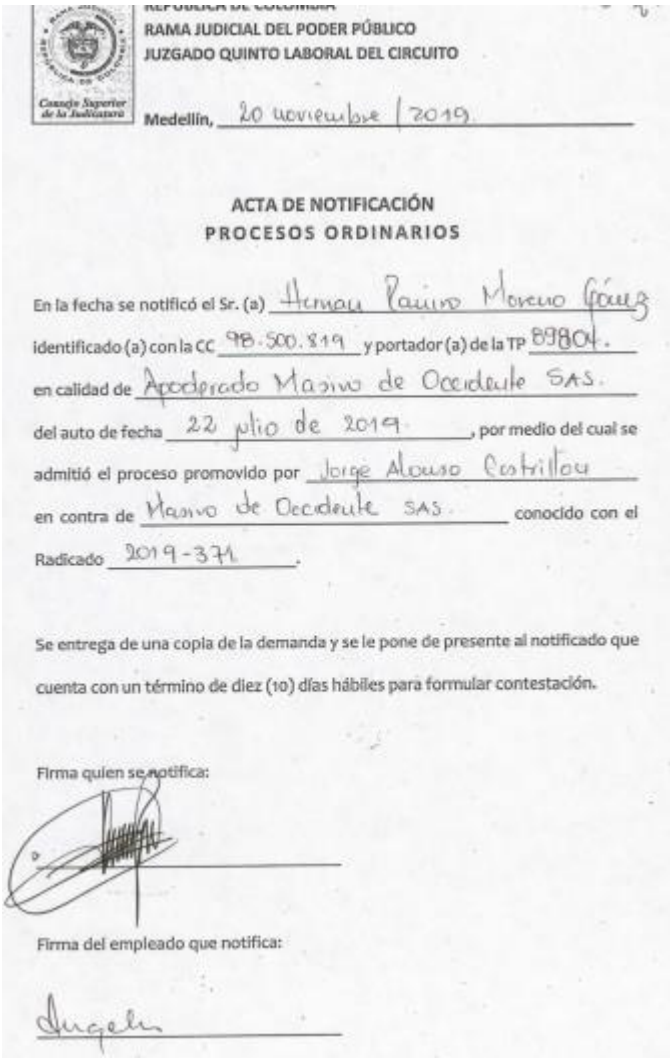 REPUBLICA DE COLOMBIA
RAMA JUDICIAL DEL PODER PÚBLICO
JUZGADO QUINTO LABORAL DEL CIRCUITO
Consejo Superior
de la Judicatura
Medellín, 20 noviembre / 2019.
ACTA DE NOTIFICACIÓN
PROCESOS ORDINARIOS
En la fecha se notificó el Sr. (a) Hernan Ramiro Moreno Gómez
identificado (a) con la CC 98.500.819 y portador (a) de la TP 89804.
en calidad de Apoderado Masivo de Occidente SAS.
del auto de fecha 22 julio de 2019. , por medio del cual se
admitió el proceso promovido por Jorge Alonso Castrillon
en contra de Masivo de Occidente SAS. conocido con el
Radicado 2019-371.
Se entrega de una copia de la demanda y se le pone de presente al notificado que
cuenta con un término de diez (10) días hábiles para formular contestación.
Firma quien se notifica:
Firma del empleado que notifica: